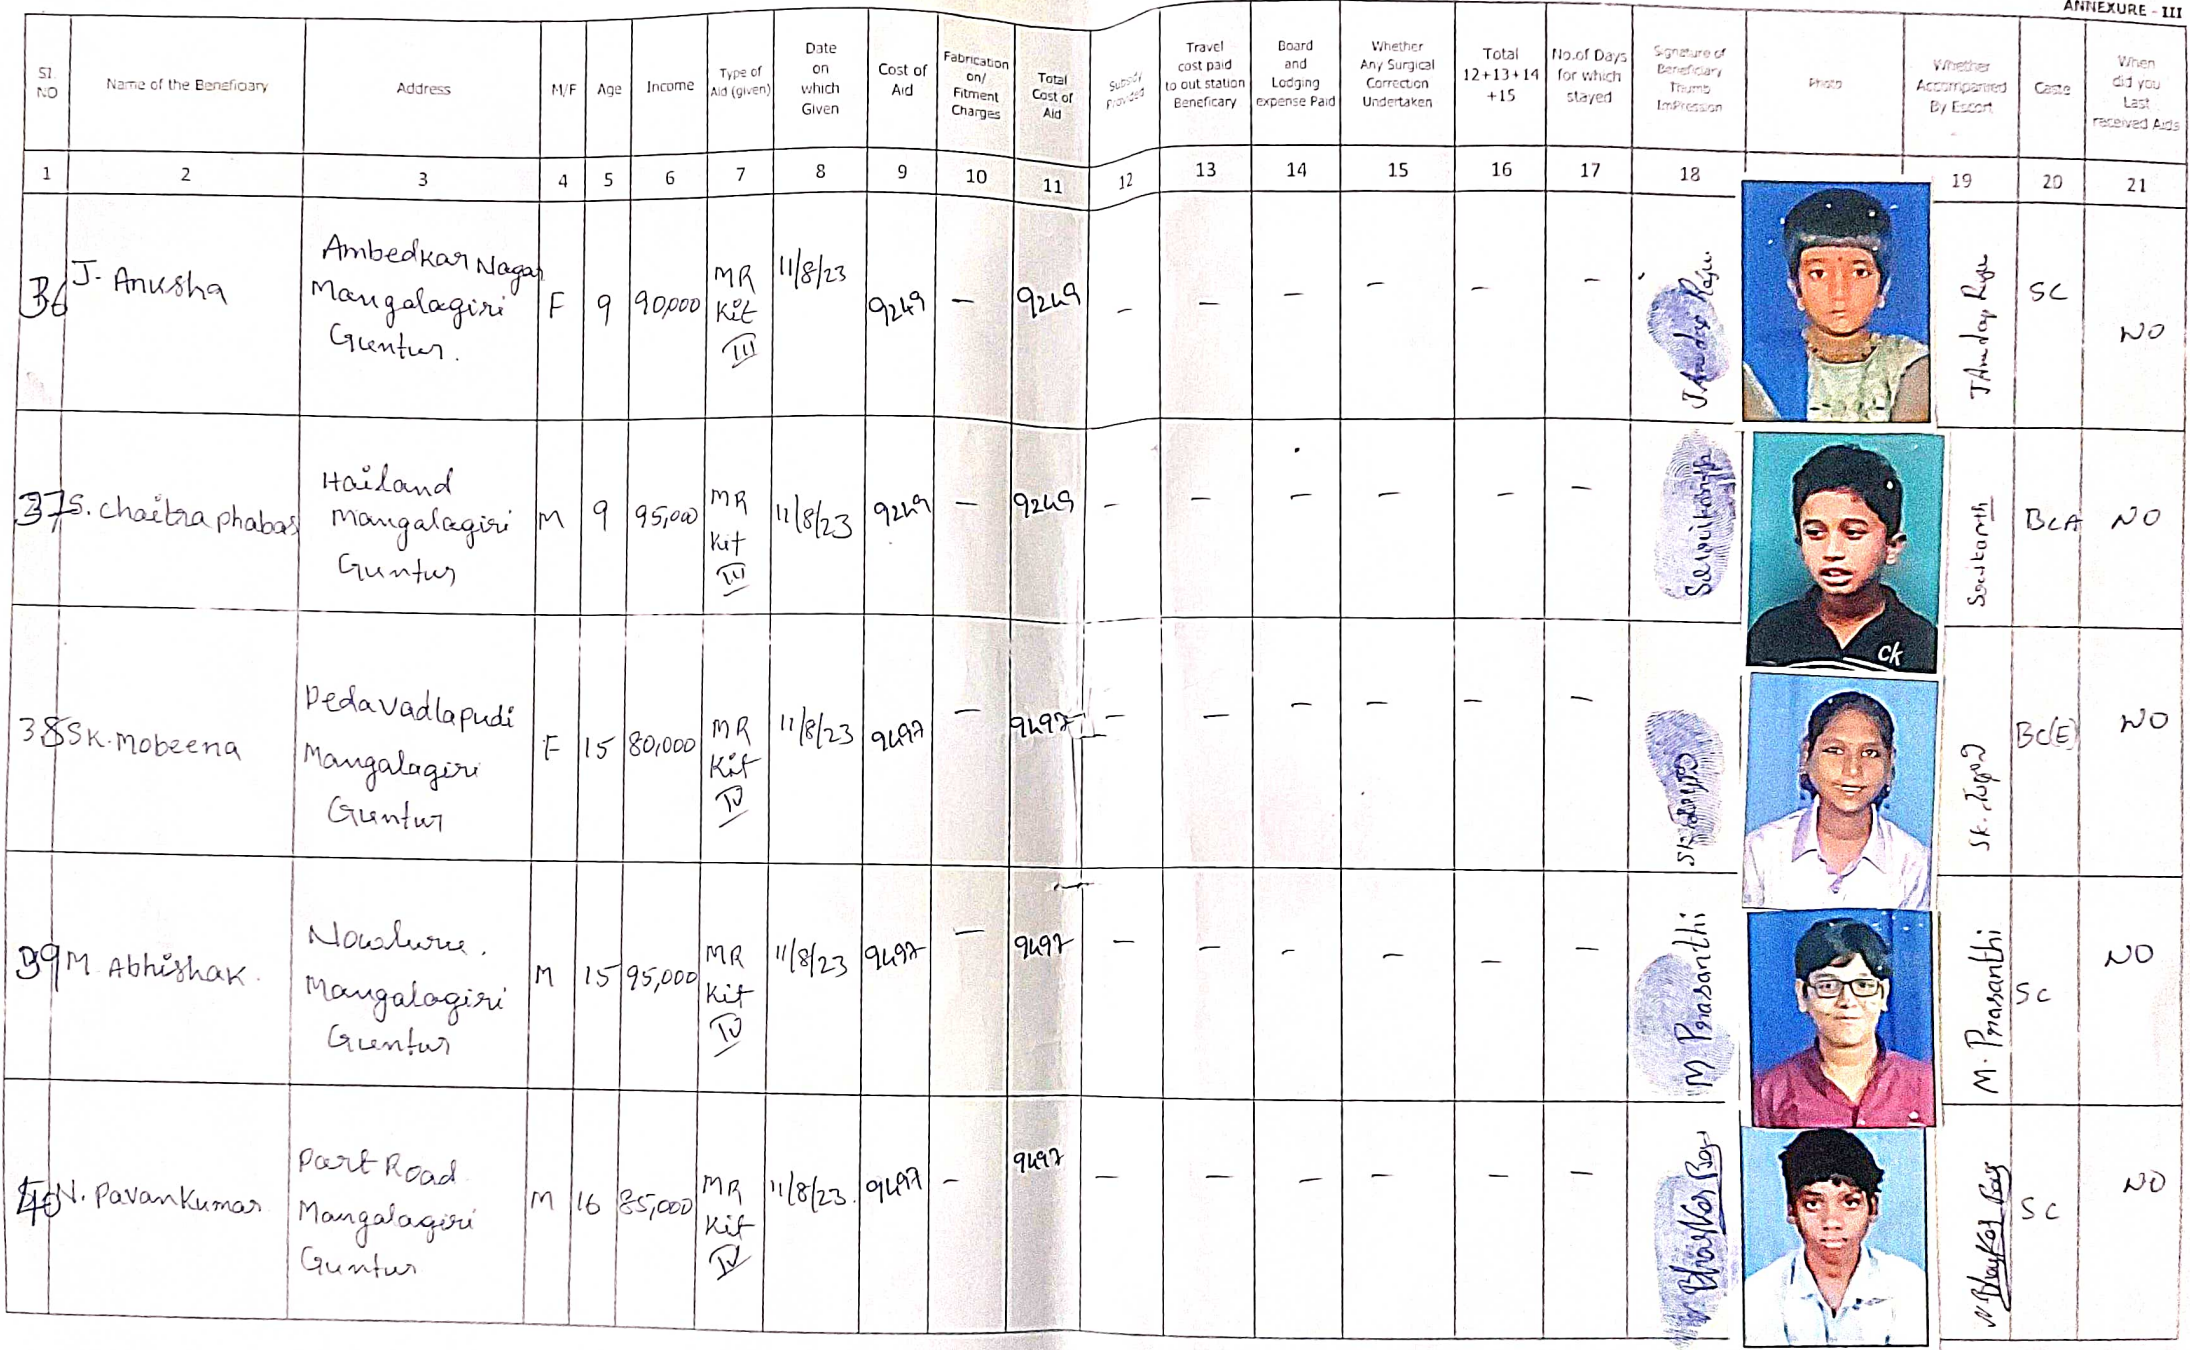 ANNEXURE - III
Sl. NO
Name of the Beneficiary
Address
M/F
Age
Income
Type of Aid (given)
Date on which Given
Cost of Aid
Fabrication on/ Fitment Charges
Total Cost of Aid
Subsidy Provided
Travel cost paid to out station Beneficary
Board and Lodging expense Paid
Whether Any Surgical Correction Undertaken
Total 12+13+14 +15
No.of Days for which stayed
Signature of Beneficiary Thumb ImPression
Photo
Whether Accompanied By Escort
Caste
When did you Last received Aids
1 2 3 4 5 6 7 8 9 10 11 12 13 14 15 16 17 18 19 20 21
36 J. Anusha
Ambedkar Nagar
Mangalagiri
Guntur.
F 9 90,000
MR
Kit
III
11/8/23
9249 — 9249 — — — — — —
SC
NO
37 S. Chaitra phabas
Hailand
Mangalagiri
Guntur
M 9 95,000
MR
Kit
III
11/8/23 9249 — 9249 — — — — — —
Srikanth
BCA NO
CK
38 SK. Mobeena
Pedavadlapudi
Mangalagiri
Guntur
F 15 80,000
MR
Kit
IV
11/8/23 9497 — 9497 — — — — — —
SK.
SK.
BC(E) NO
39 M. Abhishak.
Mangalagiri
Guntur
M 15 95,000
MR
Kit
IV
11/8/23 9497 — 9497 — — — — — —
M Prasanthi
M. Prasanthi
SC
NO
40 N. Pavan Kumar
Part Road
Mangalagiri
Guntur
M 16 85,000
MR
Kit
IV
11/8/23. 9497 — 9497 — — — — — —
N Bhaskar
N Bhaskar
SC
NO